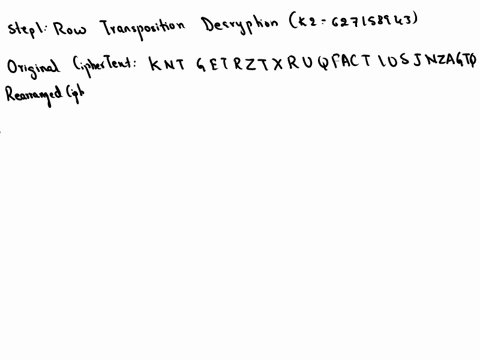 Step1: Row Transposition Decryption (K2 = 627158943)
Original CipherText: KNT GETRZTXRUQFACTIOSJNZAGTQ
Rearranged Ciph